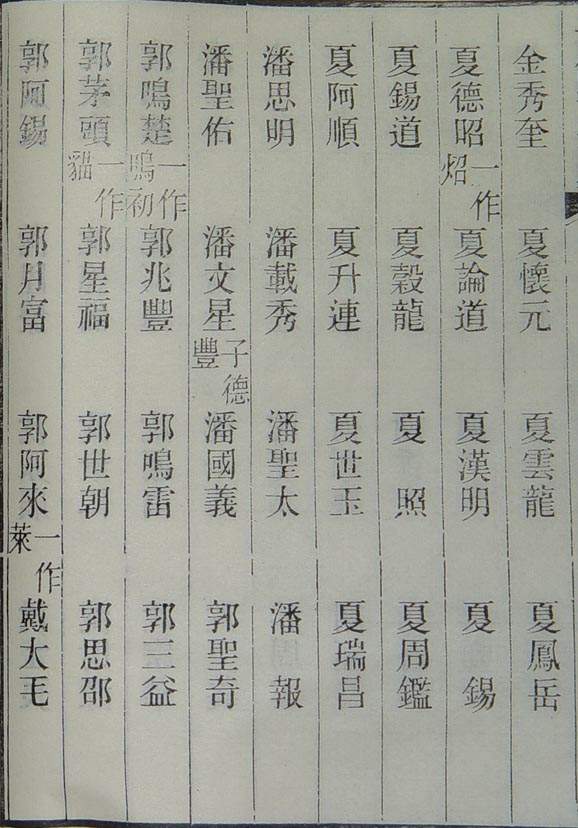 金秀奎 夏懷元 夏雲龍 夏鳳岳
夏德昭一作炤 夏論道 夏漢明 夏錫
夏錫道 夏穀龍 夏照 夏周鑑
夏阿順 夏升連 夏世玉 夏瑞昌
潘思明 潘載秀 潘聖太 潘報
潘聖佑 潘文星子德豐 潘國義 郭聖奇
郭鳴楚一作鵙初 郭兆豐 郭鳴雷 郭三益
郭茅頭一作貓 郭星福 郭世朝 郭思邵
郭阿錫 郭月富 郭阿來一作萊 戴大毛